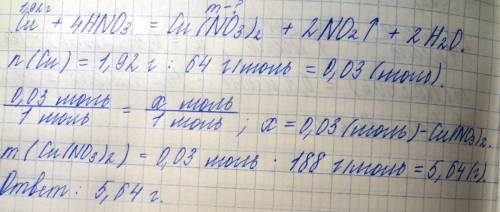 1,92г m-?
Cu + 4HNO₃ = Cu(NO₃)₂ + 2NO₂↑ + 2H₂O.
n(Cu) = 1,92 г : 64 г/моль = 0,03 (моль).
0,03 моль / 1 моль = x моль / 1 моль ; x = 0,03 (моль) - Cu(NO₃)₂.
m (Cu(NO₃)₂) = 0,03 моль · 188 г/моль = 5,64 (г).
Ответ: 5,64 г.